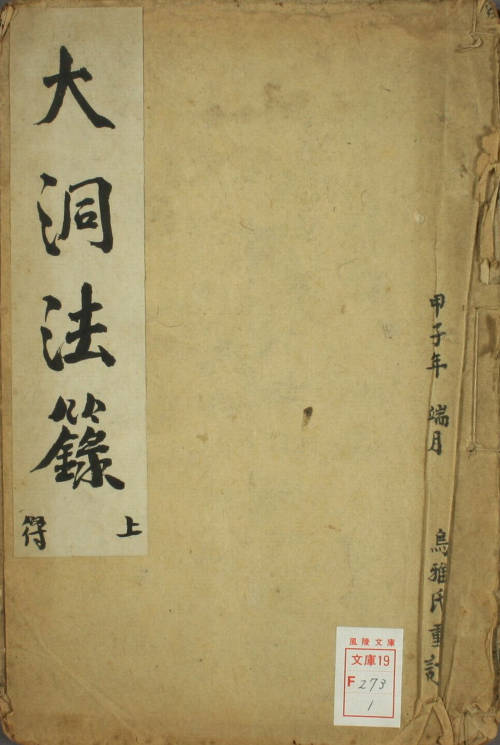 甲子年 端月
烏雅氏重訂
大洞法籙
上
符
風陵文庫
文庫19
F 273
1